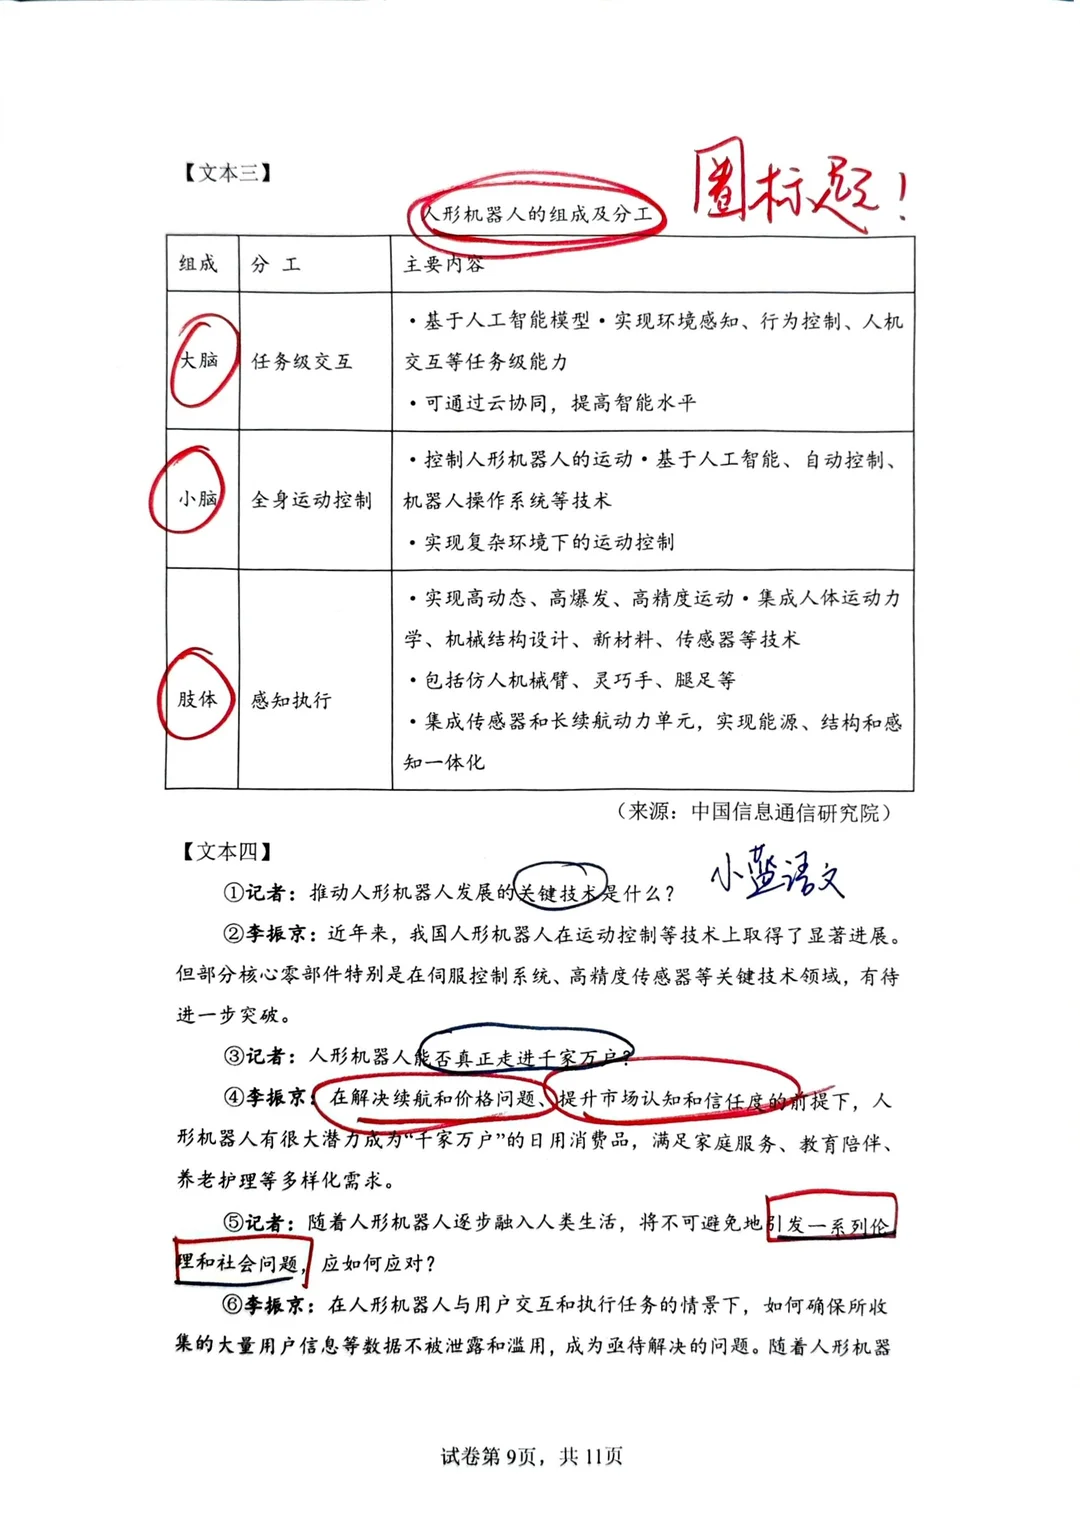 【文本三】
圈标题!
人形机器人的组成及分工
组成 分 工 主要内容
大脑 任务级交互
·基于人工智能模型·实现环境感知、行为控制、人机
交互等任务级能力
·可通过云协同，提高智能水平
小脑 全身运动控制
·控制人形机器人的运动·基于人工智能、自动控制、
机器人操作系统等技术
·实现复杂环境下的运动控制
肢体 感知执行
·实现高动态、高爆发、高精度运动·集成人体运动力
学、机械结构设计、新材料、传感器等技术
·包括仿人机械臂、灵巧手、腿足等
·集成传感器和长续航动力单元，实现能源、结构和感
知一体化
（来源：中国信息通信研究院）
【文本四】
小蓝语文
①记者：推动人形机器人发展的关键技术是什么？
②李振京：近年来，我国人形机器人在运动控制等技术上取得了显著进展。
但部分核心零部件特别是在伺服控制系统、高精度传感器等关键技术领域，有待
进一步突破。
③记者：人形机器人能否真正走进千家万户？
④李振京：在解决续航和价格问题、提升市场认知和信任度的前提下，人
形机器人有很大潜力成为“千家万户”的日用消费品，满足家庭服务、教育陪伴、
养老护理等多样化需求。
⑤记者：随着人形机器人逐步融入人类生活，将不可避免地引发一系列伦
理和社会问题，应如何应对？
⑥李振京：在人形机器人与用户交互和执行任务的情景下，如何确保所收
集的大量用户信息等数据不被泄露和滥用，成为亟待解决的问题。随着人形机器
试卷第 9页，共 11页